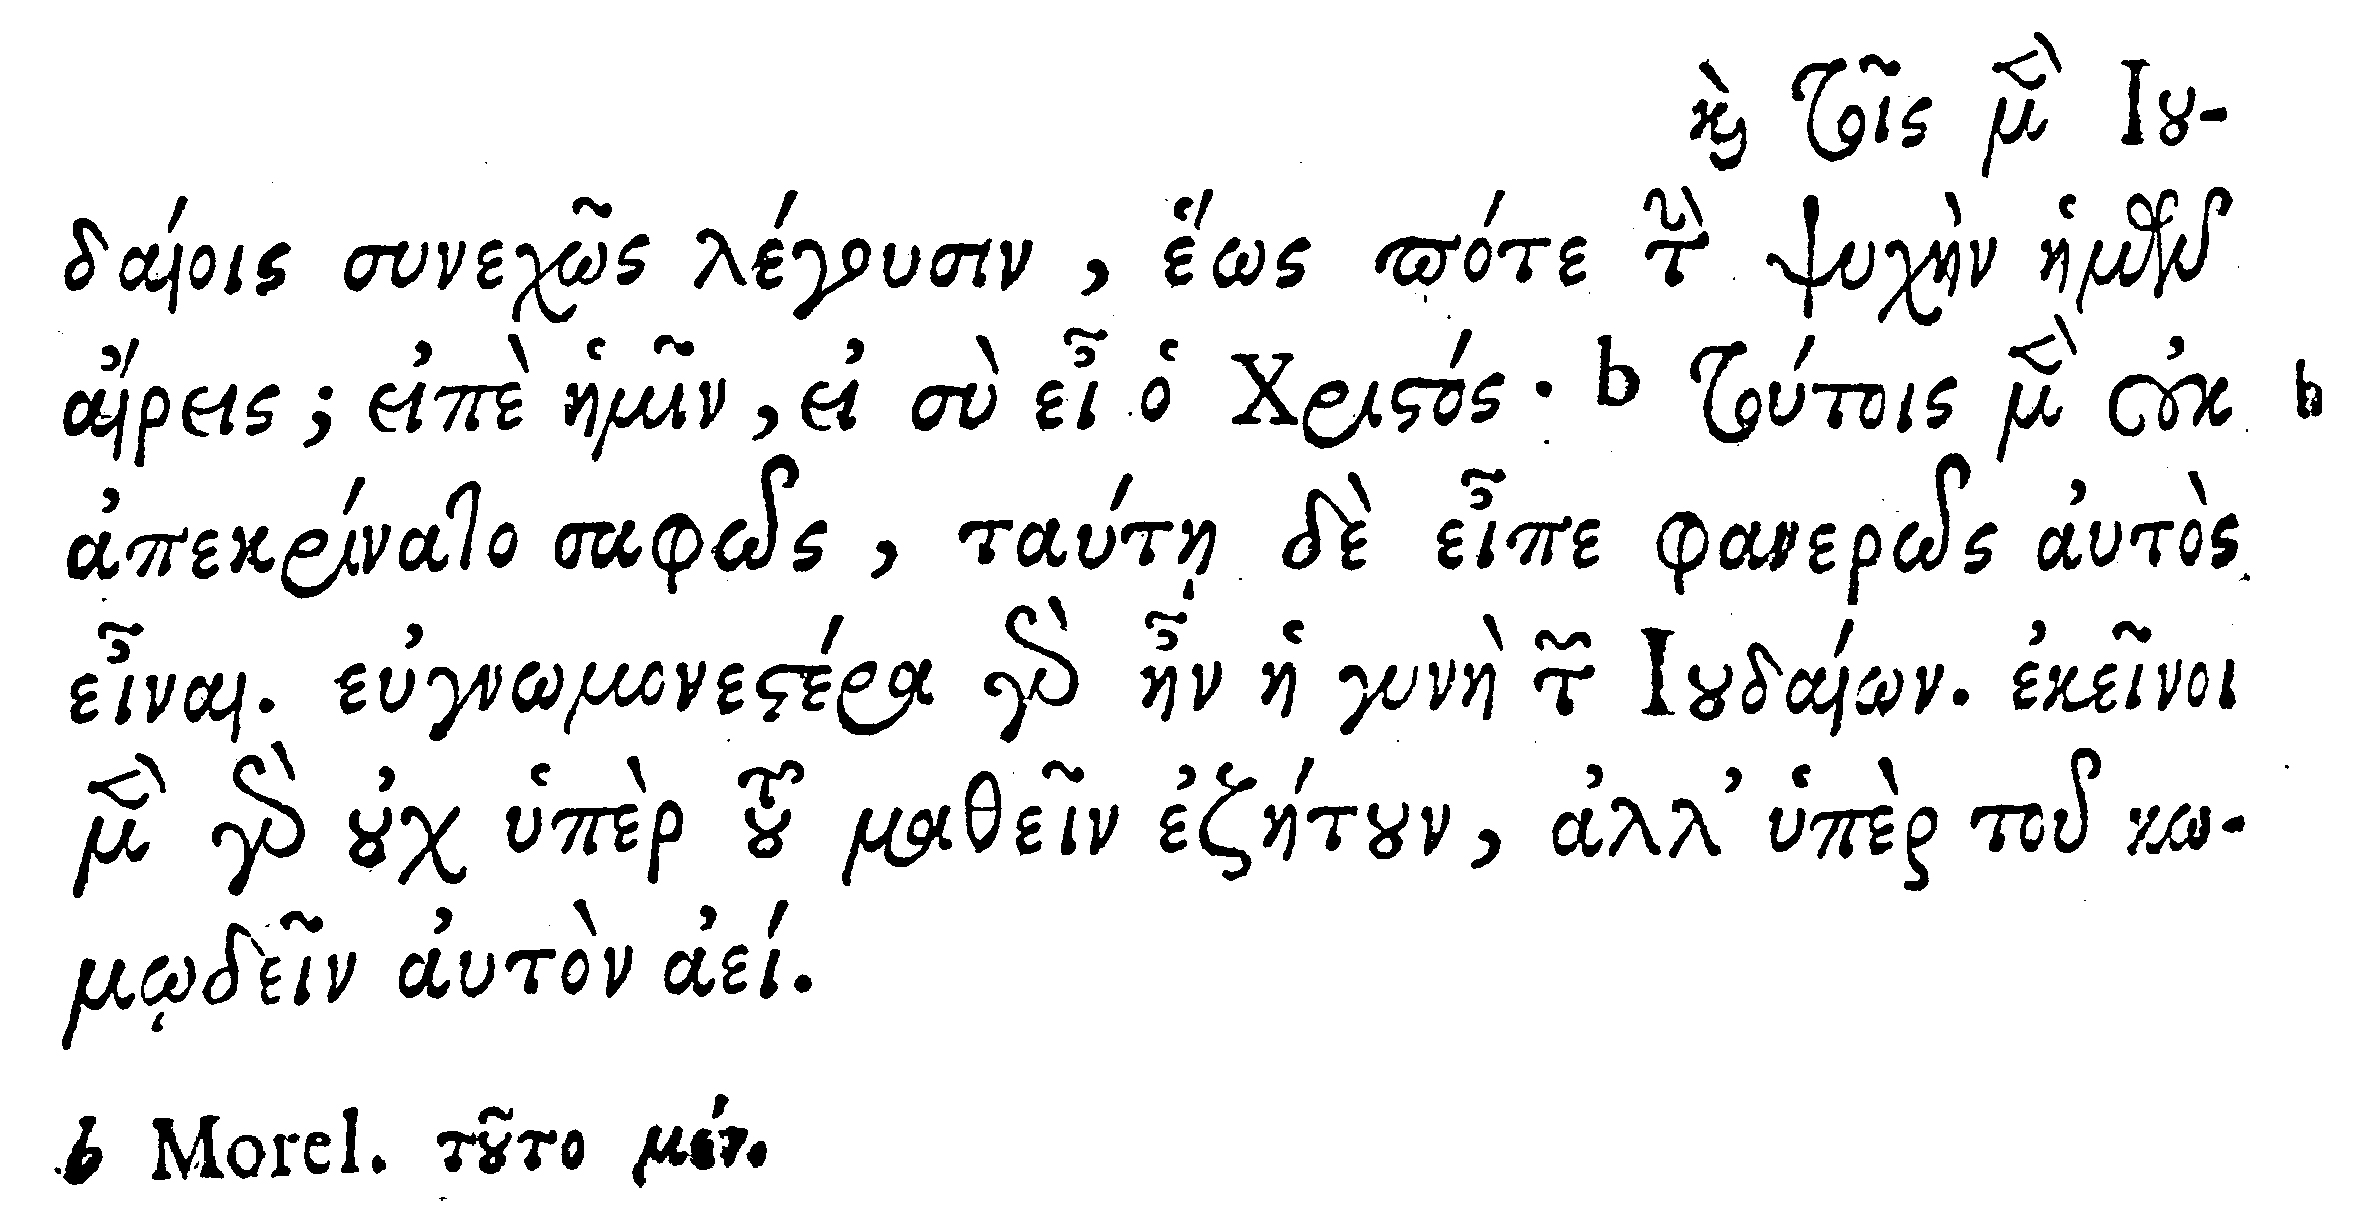 καὶ τοῖς μὲν Ἰου-
δαίοις συνεχῶς λέγουσιν, ἕως πότε τὴν ψυχὴν ἡμῶν
αἴρεις; εἰπὲ ἡμῖν, εἰ σὺ εἶ ὁ Χριστός· b τούτοις μὲν οὐκ b
ἀπεκρίνατο σαφῶς, ταύτῃ δὲ εἶπε φανερῶς αὐτὸς
εἶναι. εὐγνωμονεστέρα γὰρ ἦν ἡ γυνὴ τῶν Ἰουδαίων. ἐκεῖνοι
μὲν γὰρ οὐχ ὑπὲρ τοῦ μαθεῖν ἐζήτουν, ἀλλ' ὑπὲρ τοῦ κω-
μῳδεῖν αὐτὸν ἀεί.
b Morel. τοῦτο μέν.